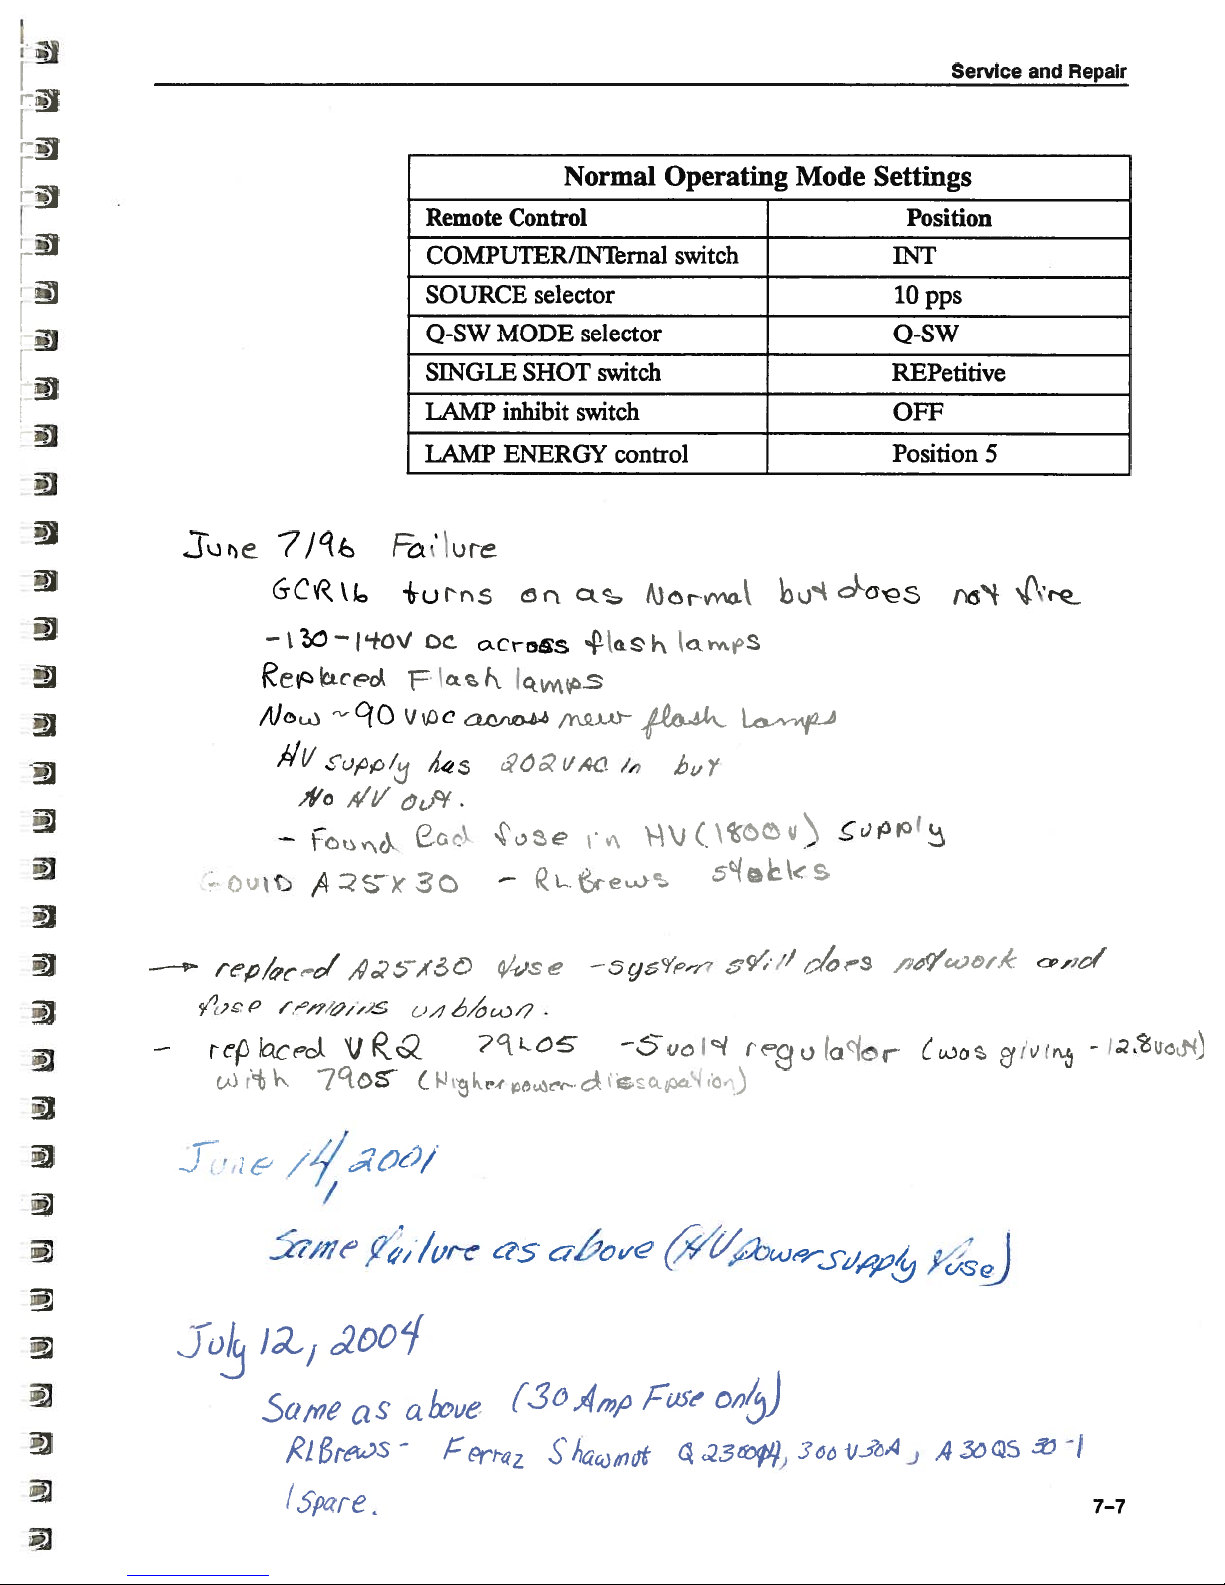 Service and Repair
Normal Operating Mode Settings
Remote Control Position
COMPUTER/INTernal switch INT
SOURCE selector 10 pps
Q-SW MODE selector Q-SW
SINGLE SHOT switch REPetitive
LAMP inhibit switch OFF
LAMP ENERGY control Position 5
June 7/96 Failure
GCR16 turns on as Normal but does not fire
-130-140V DC across flash lamps
Replaced Flash lamps
Now ~90 VDC across new flash Lamps
HV supply has 202VAC in but
No HV out.
- Found Bad fuse in HV (1800V) supply
GOULD A25X30 - RLBrews stocks
→ replaced A25X30 fuse - system still does not work and
fuse remains unblown.
- replaced VR2 79L05 -5 volt regulator (was giving -12.8Vout)
with 7905 (Higher power dissapation)
June 14, 2001
Same failure as above (HV power supply fuse)
July 12, 2004
Same as above (30 Amp Fuse only)
RLBrews - Ferraz Shawmut 300V30A, A30QS 30-1
1 Spare.
7-7